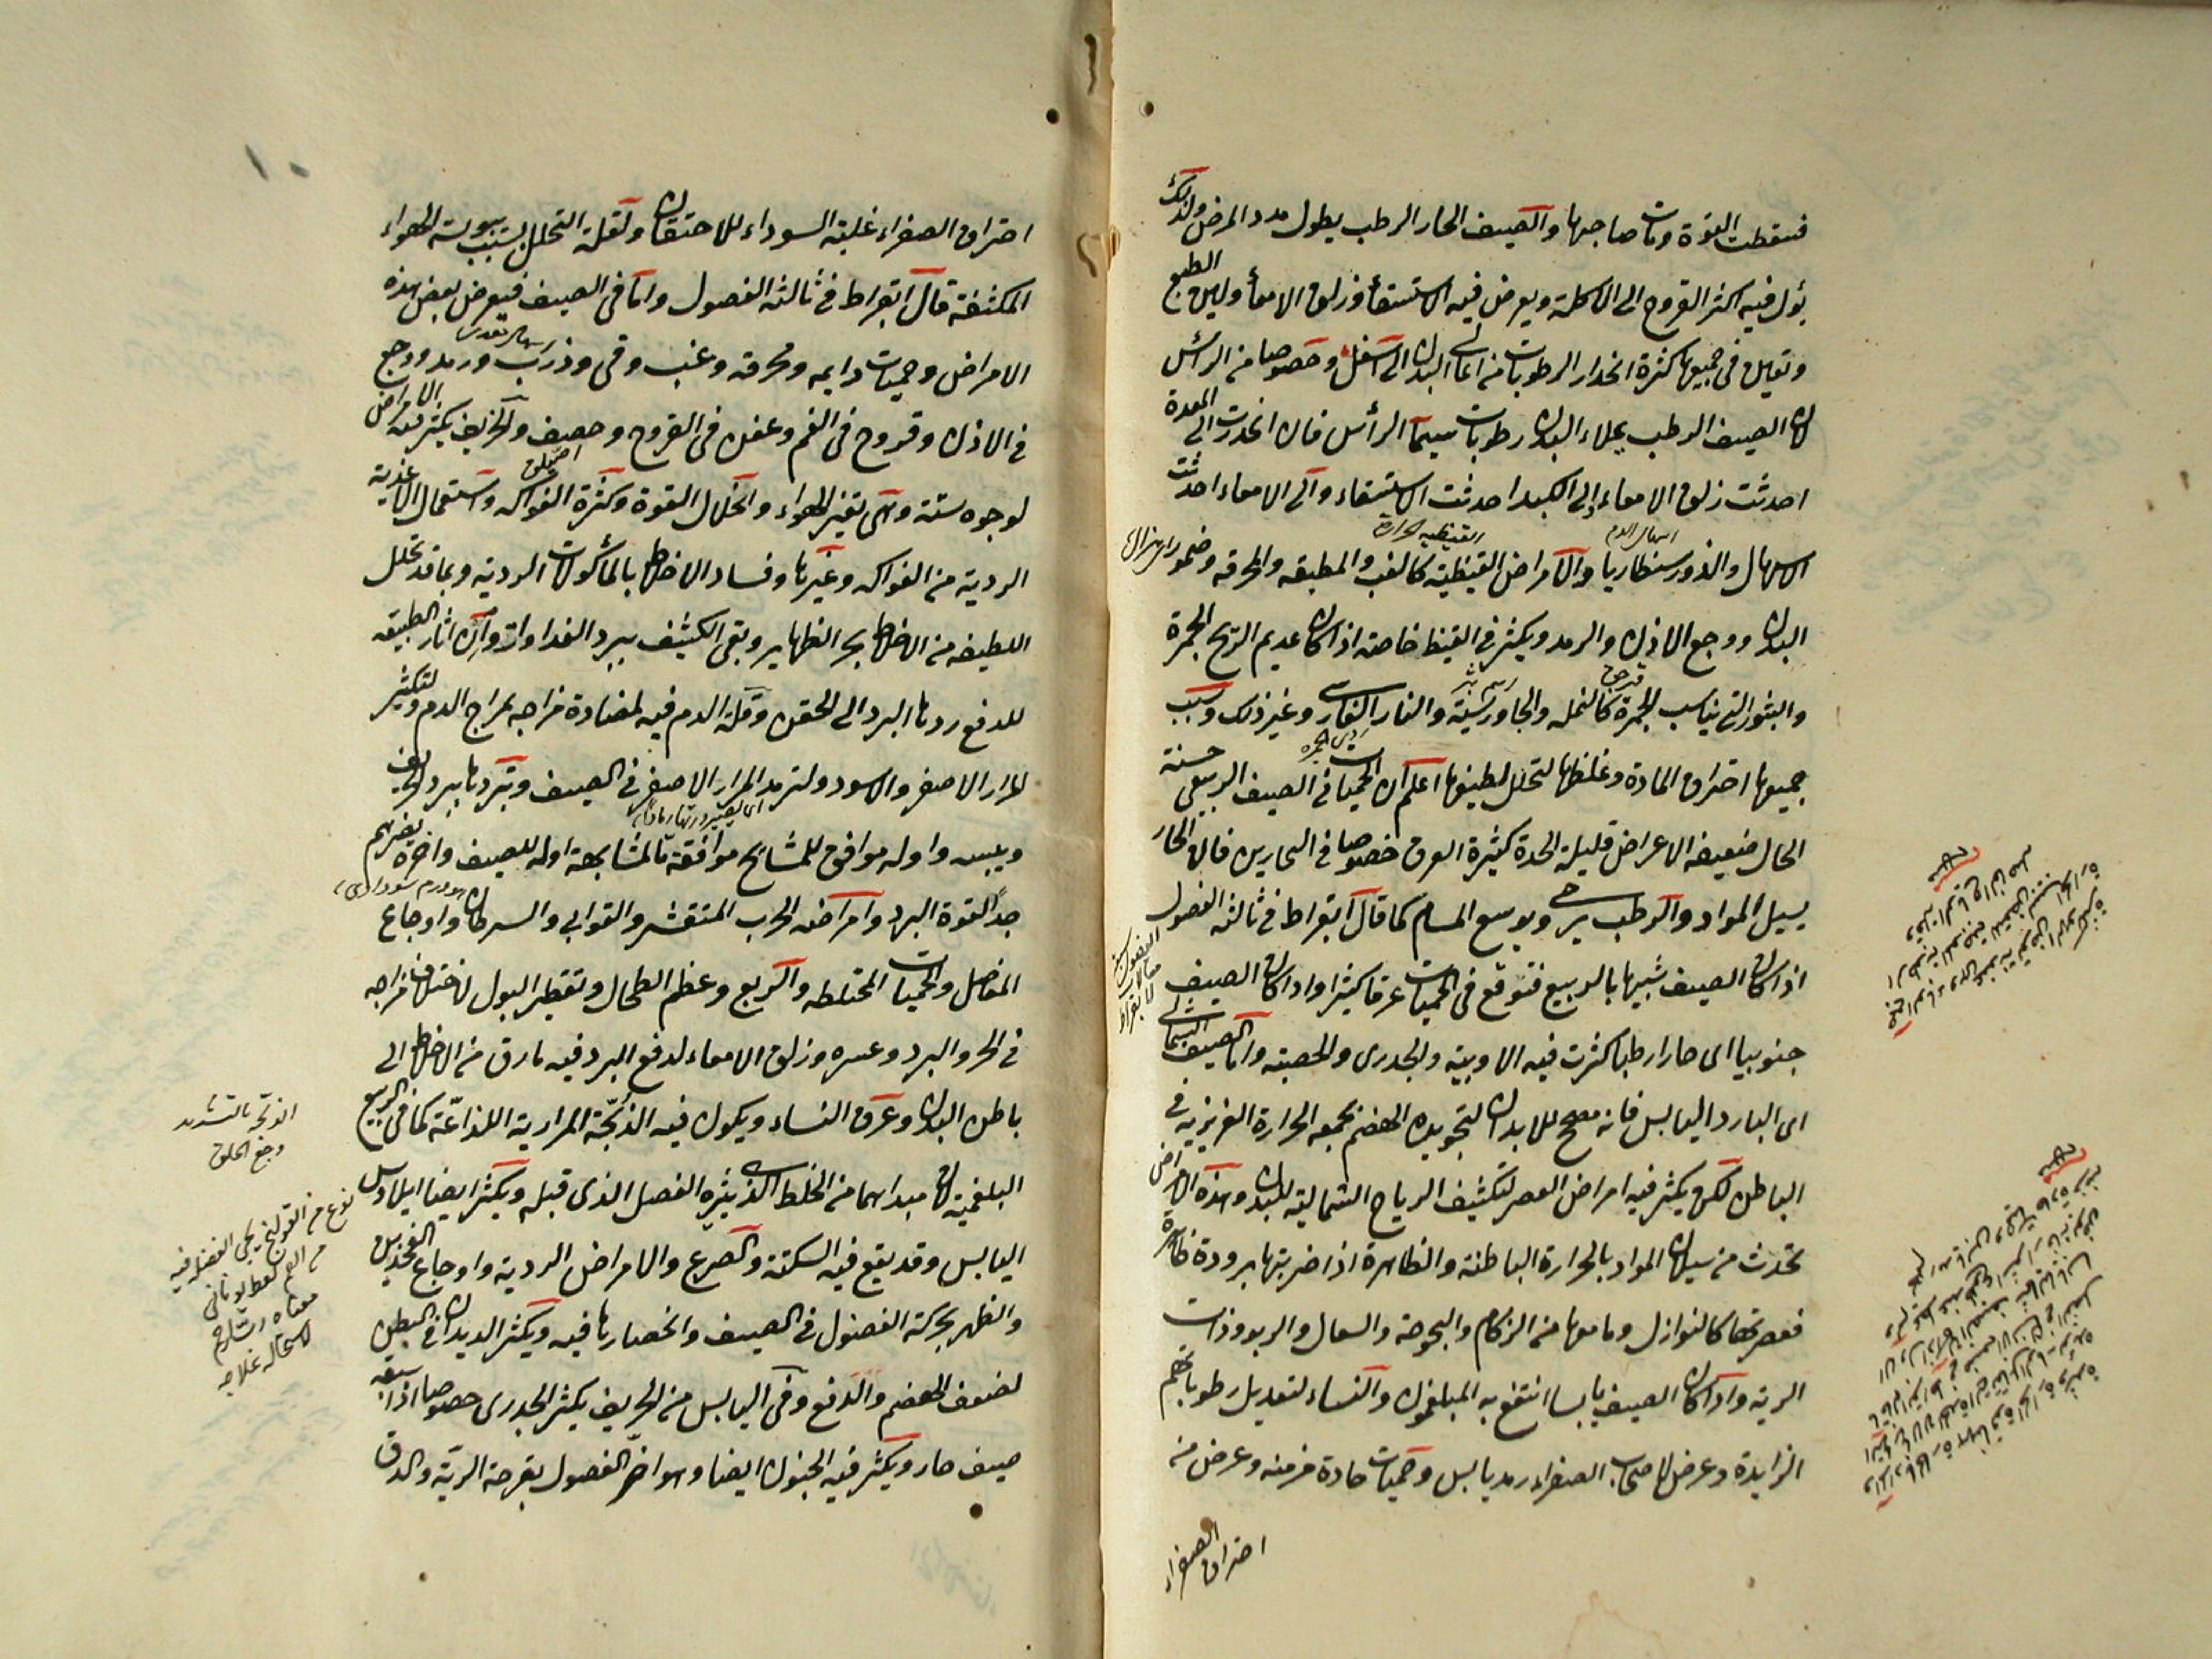 فسقطت القوة ومات صاحبها والصيف الحار الرطب يطول مدد المرض ولذلك
يؤل فيه اكثر القروح الى الاكلة ويعرض فيه الاستسقاء وزلق الامعاء ولين الطبع
وتعين فى جميعها كثرة انحدار الرطوبات من اعالى البدن الى اسفل وخصوصا من الراس
لان الصيف الرطب يملاء البدن رطوبات سيما الرأس فان انحدرت الى المعدة
احدثت زلق الامعاء والى الكبد احدثت الاستسقاء والى الامعاء احدثت
الاسهال والذوسنطاريا والامراض القيظية كالغب والمطبقه والمحرقه وضمور
البدن ووجع الاذن والرمد ويكثر فى القيظ خاصة اذا كان عديم الريح الحمرة
والبثور التى يناسب الحمرة كالنملة والجاورسية والنار الفارسى وغير ذلك وسبب
جميعها احتراق المادة وغلظها لتحلل لطيفها اعلم ان الحميات فى الصيف الربيعى حسنة
الحال ضعيفة الاعراض قليلة الحدة كثيرة العرق خصوصا فى البحارين فان الحار
يسيل المواد والرطب يرخى ويوسع المسام كما قال ابقراط فى ثالثة الفصول
اذا كان الصيف شبيها بالربيع فتوقع فى الحميات عرقا كثيرا واذا كان الصيف
جنوبيا اى حارا رطبا كثرت فيه الاوبية والجدرى والحصبه واما الصيف الشمالى
اى البارد اليابس فانه مصحح للابدان لتجويده الهضم بجمعه الحرارة الغريزية فى
الباطن لكن يكثر فيه امراض العصر لتكثيف الرياح الشمالية للبدن وهذه الامراض
تحدث من سيلان المواد بالحرارة الباطنة والظاهرة اذا ضربتها برودة ظاهرة
فعصرتها كالنوازل وما معها من الزكام والبحوحة والسعال والربو وذات
الرية واذا كان الصيف يابسا انتفع به المبلغمون والنساء لتعديل رطوباتهم
الزايدة وعرض لاصحاب الصفراء رمد يابس وحميات حادة مزمنه وعرض من
احتراق الصفراء
احتراق الصفراء غلبة السوداء للاحتقان ولقلة التحلل بسبب يبوسة الهواء
المكثفة قال ابقراط فى ثالثة الفصول واما فى الصيف فيعرض بعض هذه
الامراض وحميات دايمه ومحرقه وغب وقى وذرب ورمد ووجع
فى الاذن وقروح فى الفم وعفن فى القروح وحصف والخريف يكثر فيه الامراض
لوجوه ستة وهى تغير الهواء وانحلال القوة وكثرة الفواكه واستعمال الاغذية
الردية من الفواكه وغيرها وفساد الاخلاط بالمأكولات الردية وبما قد تحلل
اللطيف من الاخلاط بحر الظهاير وبقى الكثيف ببرد الغداوات وان اثار الطبيعة
للدفع ردها البرد الى الحقن وقلة الدم فيه لمضادة مزاجه بمزاج الدم وتكثير
المرار الاصفر والاسود ولترمد المرار الاصفر فى الصيف وتبردها ببرد الخريف
ويبسه واوله موافق للمشايخ موافقة ما لمشابهة اوله للصيف واخره يضرهم
جدا لقوة البرد وامراضه الجرب المتقشر والقوابى والسرطان واوجاع
المفاصل والحميات المختلطه والربع وعظم الطحال وتقطير البول لاختلاف مزاجه
فى الحر والبرد وعسره وزلق الامعاء لدفع البرد فيه ما رق من الاخلاط الى
باطن البدن وعرق النساء ويكون فيه الذبحة المرارية اللذاعة كما فى الربيع
البلغمية لان مبداهما من الخلط الذى يثيره الفصل الذى قبله ويكثر ايضا ايلاوس
اليابس وقد يقع فيه السكتة والصرع والامراض الردية واوجاع الفخذين
والظهر بحركة الفضول فى الصيف وانحصارها فيه ويكثر الديدان فى البطن
لضعف الهضم والدفع وفى اليابس من الخريف يكثر الجدرى خصوصا اذا سبقه
صيف حار ويكثر فيه الجنون ايضا وهو اضر الفصول بقرحة الرية والدق
الذبحة بالتشديد
وجع الحلق
نوع من القولنج يجى الفضل فيه
من الفم لفظ يونانى
معناه رب ارحم
لاستحاله علاجه